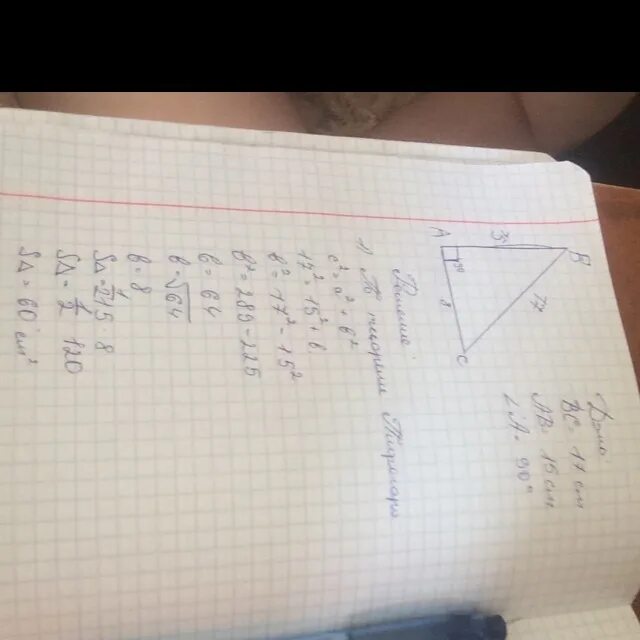 Дано:
BC = 17 см
AB = 15 см
∠A = 90°
B
17
15
A
90°
8
C
Решение:
1) По теореме Пифагора
c² = a² + b²
17² = 15² + b
b² = 17² - 15²
b² = 289 - 225
b = 64
b = √64
b = 8
S△ = 1/2 15 · 8
S△ = 1/2 120
S△ = 60 см²